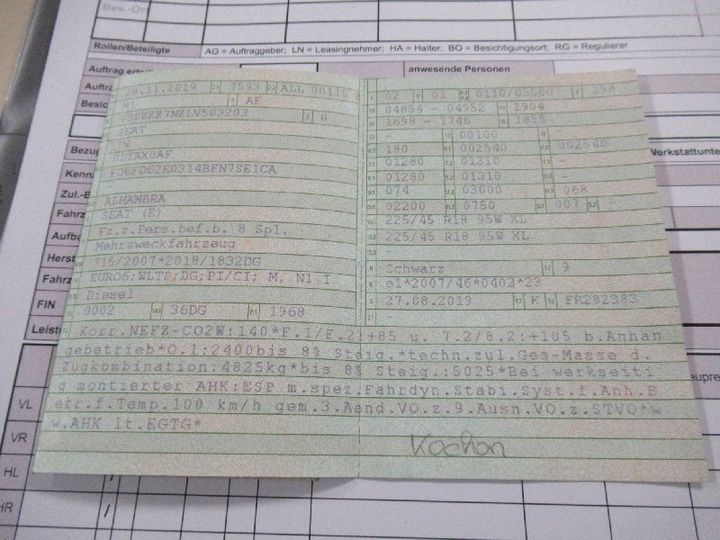 Bes.-Or
Rollen/Beteiligte AG = Auftraggeber; LN = Leasingnehmer; HA = Halter; BO = Besichtigungsort; RG = Regulierer
Auftrag erteil
anwesende Personen
Auftra
Besic
Bezug
Kennz
Zul.-B
Fahrz
Aufba
Herst
Fahrz
FIN
Leist
Werkstattunte
VL
VR
HL
HR
.11.2019 7593 ALL 0011
M1 AF
0
SEAT
7N
ALHAMBRA
SEAT (E)
Fz.z.Pers.bef.b. 8 Spl.
Mehrzweckfahrzeug
715/2007*2018/1832DG
EURO6;WLTP;DG;PI/CI; M, N1 I
Diesel
0002 36DG 1968
02 01 0110/03500 198
04854 - 04952 1904
1855
00100 -
180 002540 002540
01280 01310 -
01280 01310 -
074 03000 068
02200 0750 007 -
225/45 R18 95W XL
225/45 R18 95W XL
-
-
Schwarz 9
e1*2007/46*0402*23
27.08.2019 K FR282383
-
Korr.NEFZ-CO2W:140*F.1/F.2:+85 u. 7.2/8.2:+105 b.Anhän
gebetrieb*O.1:2400bis 8% Steig.*techn.zul.Ges-Masse d.
Zugkombination:4825kg*bis 8% Steig.:5025*Bei werkseiti
g montierter AHK:ESP m.spez.Fahrdyn.Stabi.Syst.f.Anh.B
etr.f.Temp.100 km/h gem.3.Aend.VO.z.9.Ausn.VO.z.STVO*w
w.AHK lt.EGTG*